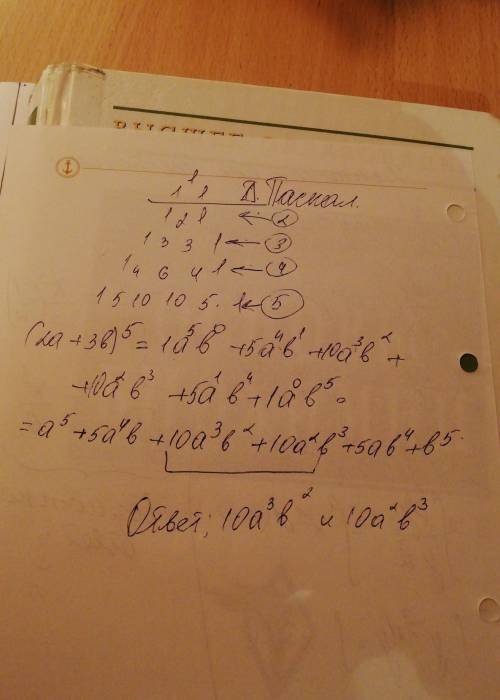 1
1 1 Д. Паскал.
1 2 1 ← 2
1 3 3 1 ← 3
1 4 6 4 1 ← 4
1 5 10 10 5 1 ← 5
(2a+3b)⁵ = 1a⁵b⁰ + 5a⁴b¹ + 10a³b² +
+ 10a²b³ + 5a¹b⁴ + 1a⁰b⁵ =
= a⁵ + 5a⁴b + 10a³b² + 10a²b³ + 5ab⁴ + b⁵.
Ответ: 10a³b² и 10a²b³